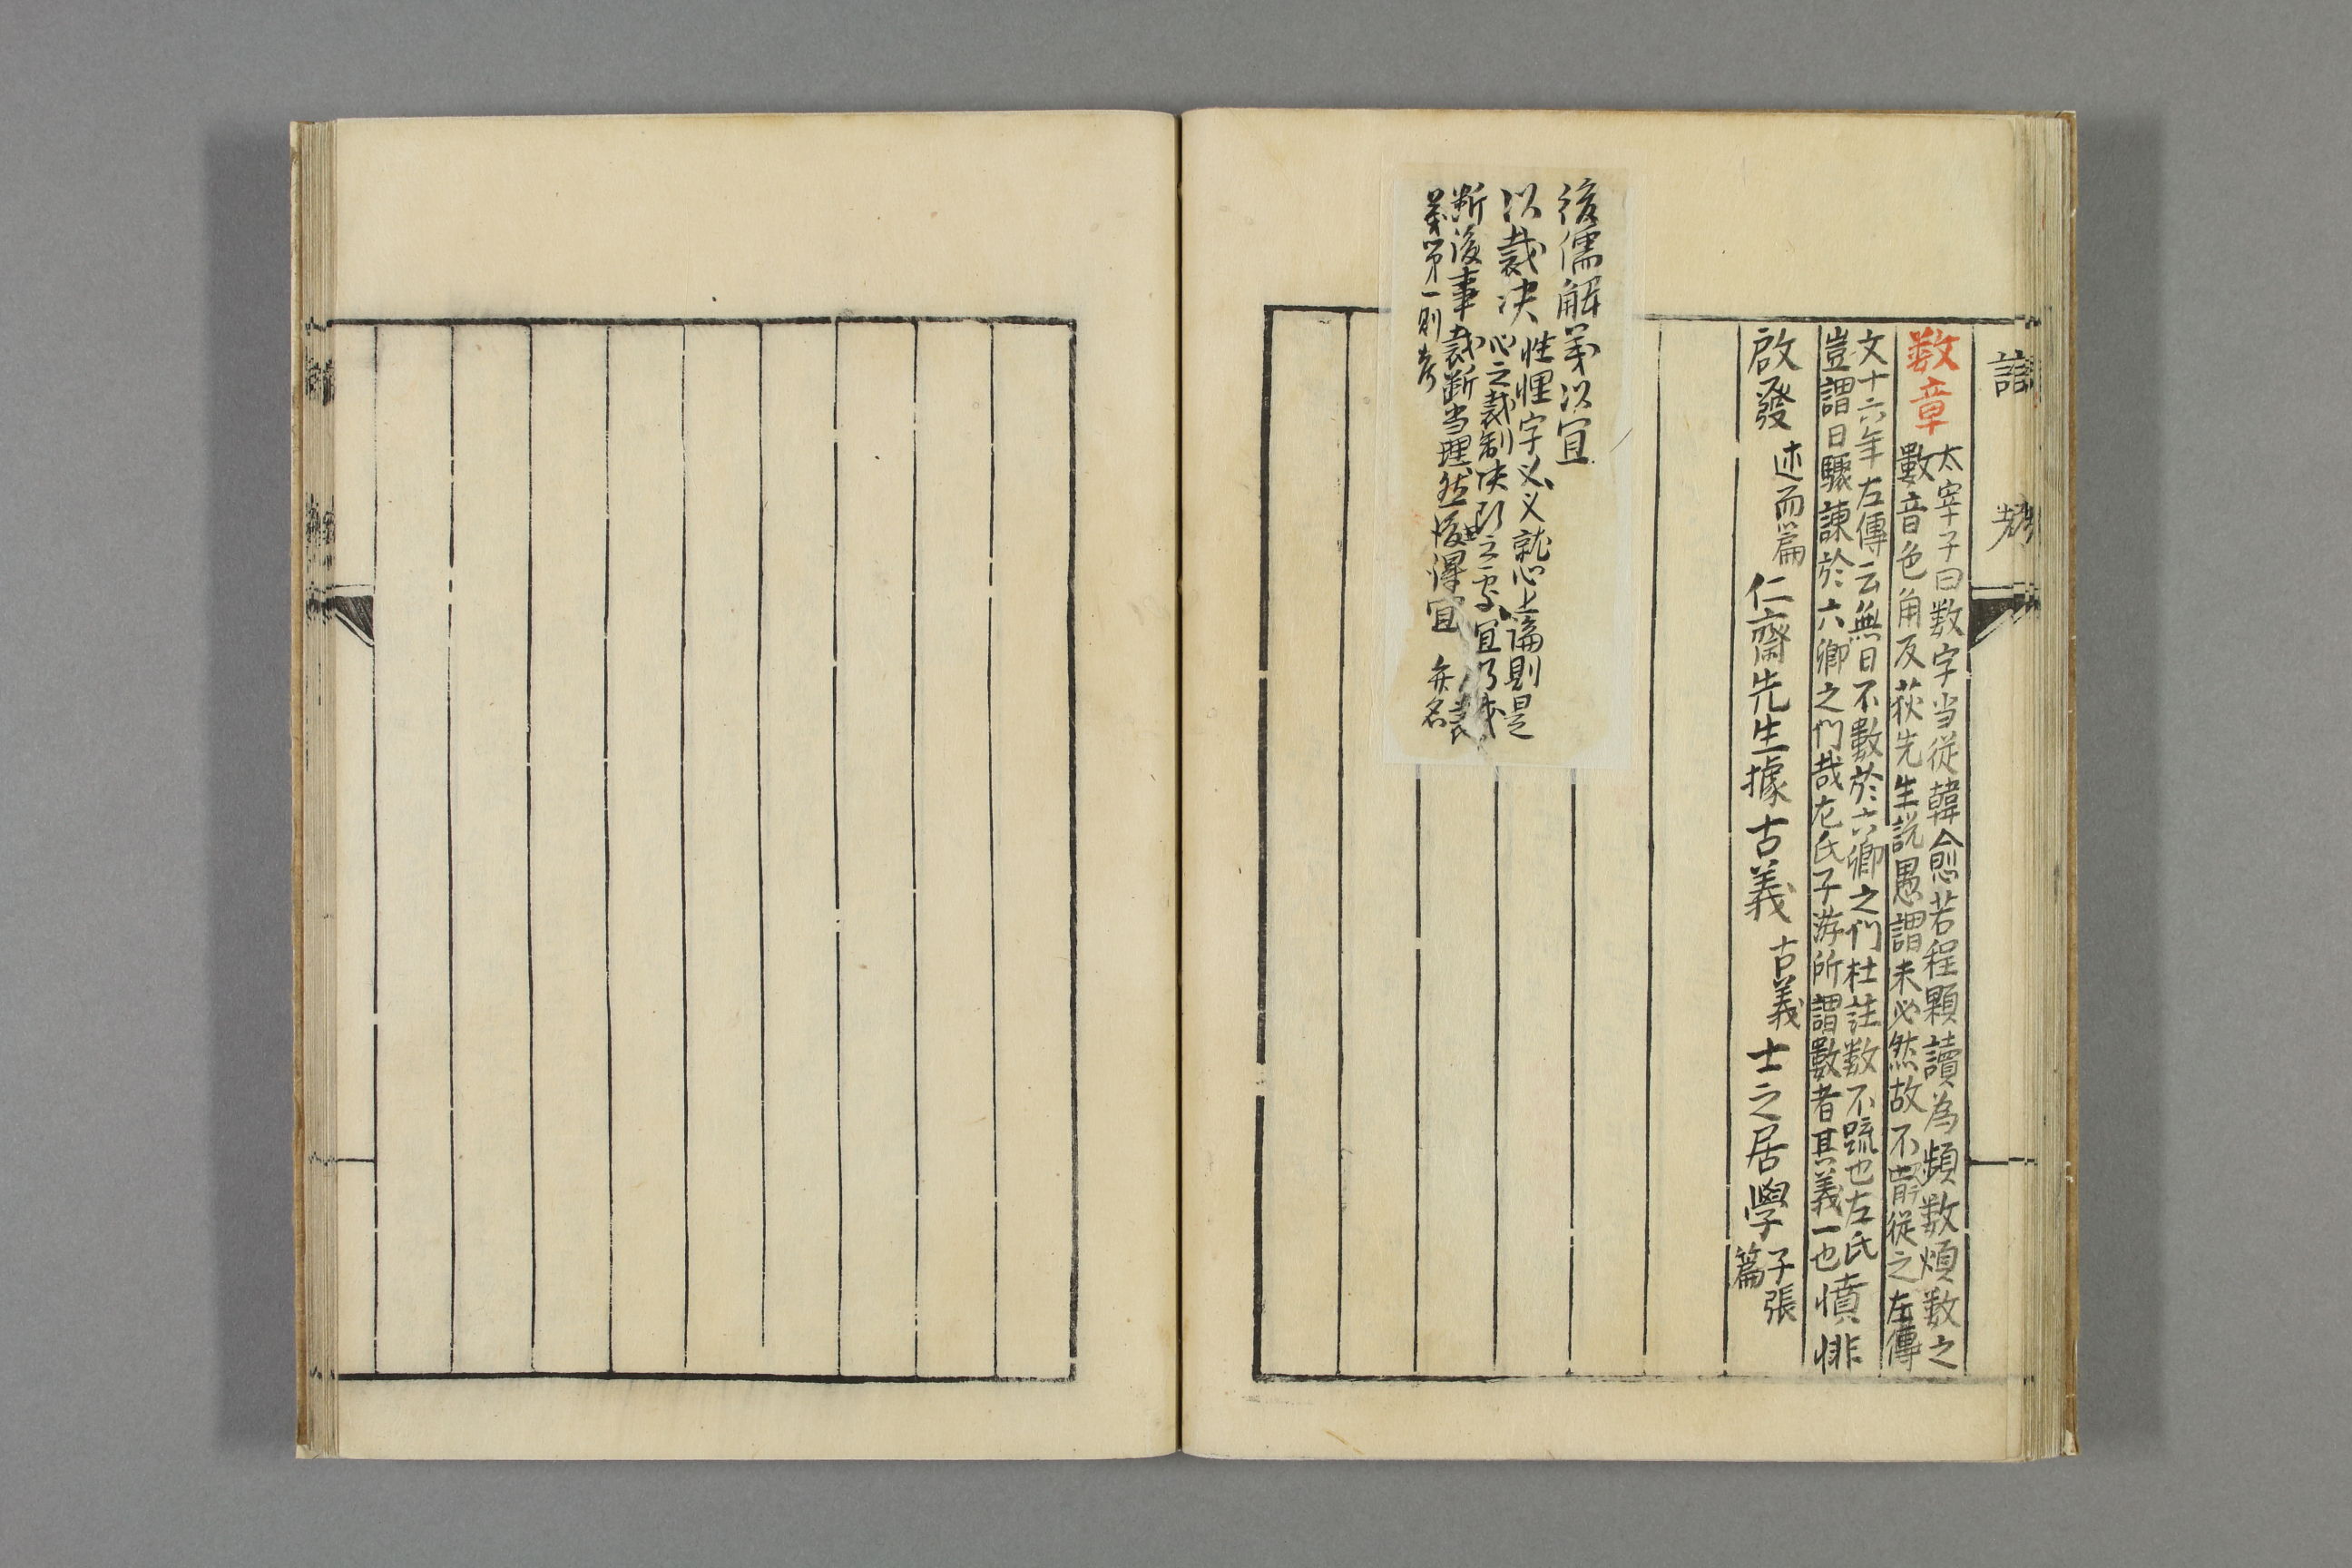 語
数章
太宰子曰数字当従韓愈若程顆讀為頻数煩数之
數音色角反荻先生説愚謂未必然故不肯従之左傳
文十六年左傳云無日不數於六卿之門杜註数不疏也左氏
豈謂日驟諫於六卿之門哉左氏子游所謂數者其義一也
憤悱
啟發 述而篇 仁齋先生據古義 古義 士之居學 子張
篇
後儒解義以宜
以裁决
性理字义义就心上論則是
心之裁制决断之處宜乃裁
断後事裁断当理然後得宜
弁名
義第一則考